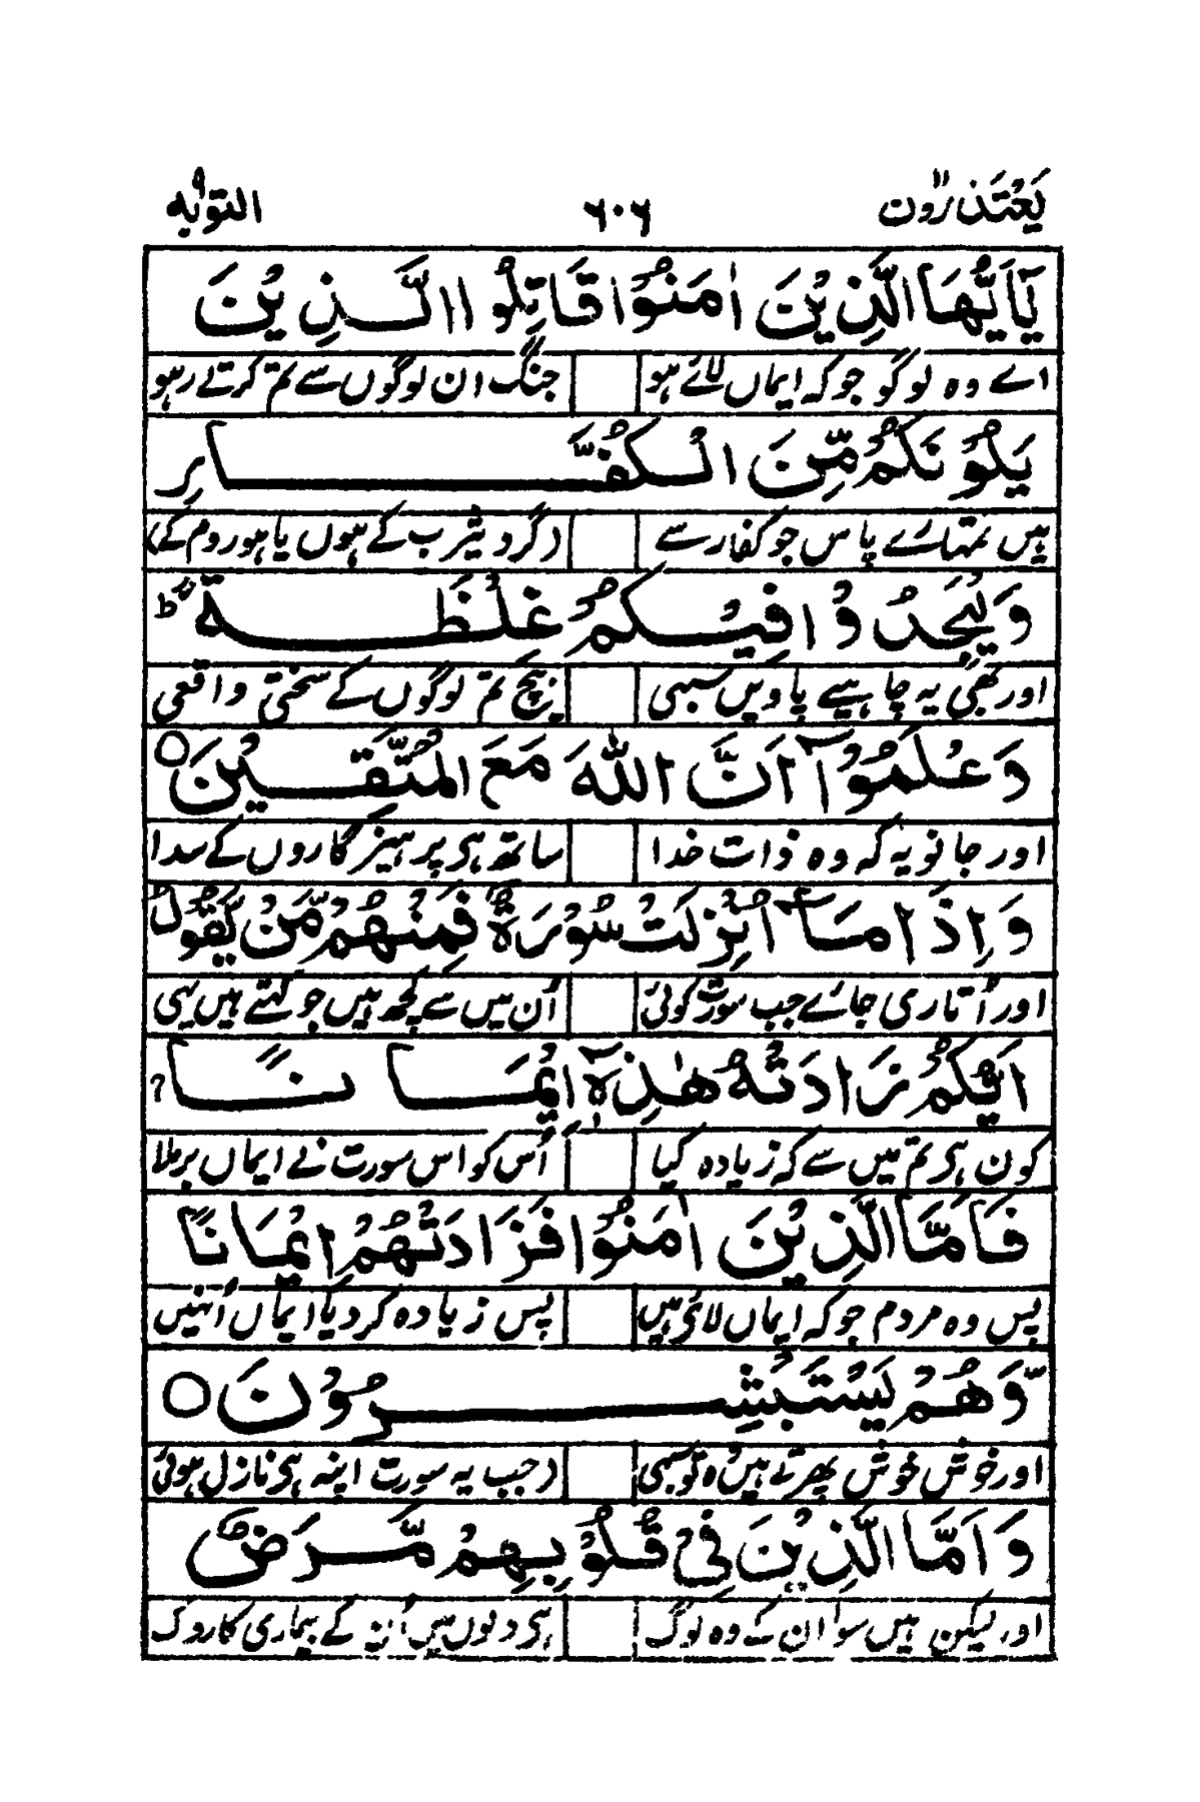 یَعْتَذِرُوْن ١١ ٦٠٦ التوبه ٩
یٰۤاَیُّهَا الَّذِیْنَ اٰمَنُوْا قَاتِلُوا الَّذِیْنَ
اے وہ لوگو جو کہ ایماں لائے ہو جنگ ان لوگوں سے تم کرتے رہو
یَلُوْنَكُمْ مِّنَ الْكُفَّارِ
ہیں تمہارے پاس جو کفار سے (گرد یثرب کے ہوں یا ہو روم کے)
وَ لْیَجِدُوْا فِیْكُمْ غِلْظَةً ؕ
اور بھی یہ چاہیے پاویں سبھی بیچ تم لوگوں کے سختی واقعی
وَ عْلَمُوْۤا اَنَّ اللّٰهَ مَعَ الْمُتَّقِیْنَ ○
اور جانو یہ کہ وہ ذات خدا ساتھ ہی پرہیزگاروں کے سدا
وَ اِذَا مَاۤ اُنْزِلَتْ سُوْرَةٌ فَمِنْهُمْ مَّنْ یَّقُوْلُ
اور اُتاری جائے جب سورت کوئی اُن میں سے کچھ ہیں جو کہتے ہیں یہی
اَیُّكُمْ زَادَتْهُ هٰذِهٖۤ اِیْمَانًا ۚ
کون ہی تم میں سے کہ زیادہ کیا اُس کو اس سورت نے ایماں برملا
فَاَمَّا الَّذِیْنَ اٰمَنُوْا فَزَادَتْهُمْ اِیْمَانًا
پس وہ مردم جو کہ ایماں لائی ہیں پس زیادہ کر دیا ایماں اُنہیں
وَّ هُمْ یَسْتَبْشِرُوْنَ ○
اور خوش خوش پھرتے ہیں وہ تو سبھی (جب یہ سورت اپنہ ہی نازل ہوئی
وَ اَمَّا الَّذِیْنَ فِیْ قُلُوْبِهِمْ مَّرَضٌ
اور لیکن ہیں سوا ان کے وہ لوگ ہی دلوں میں اُنہ کے بیماری کا روگ